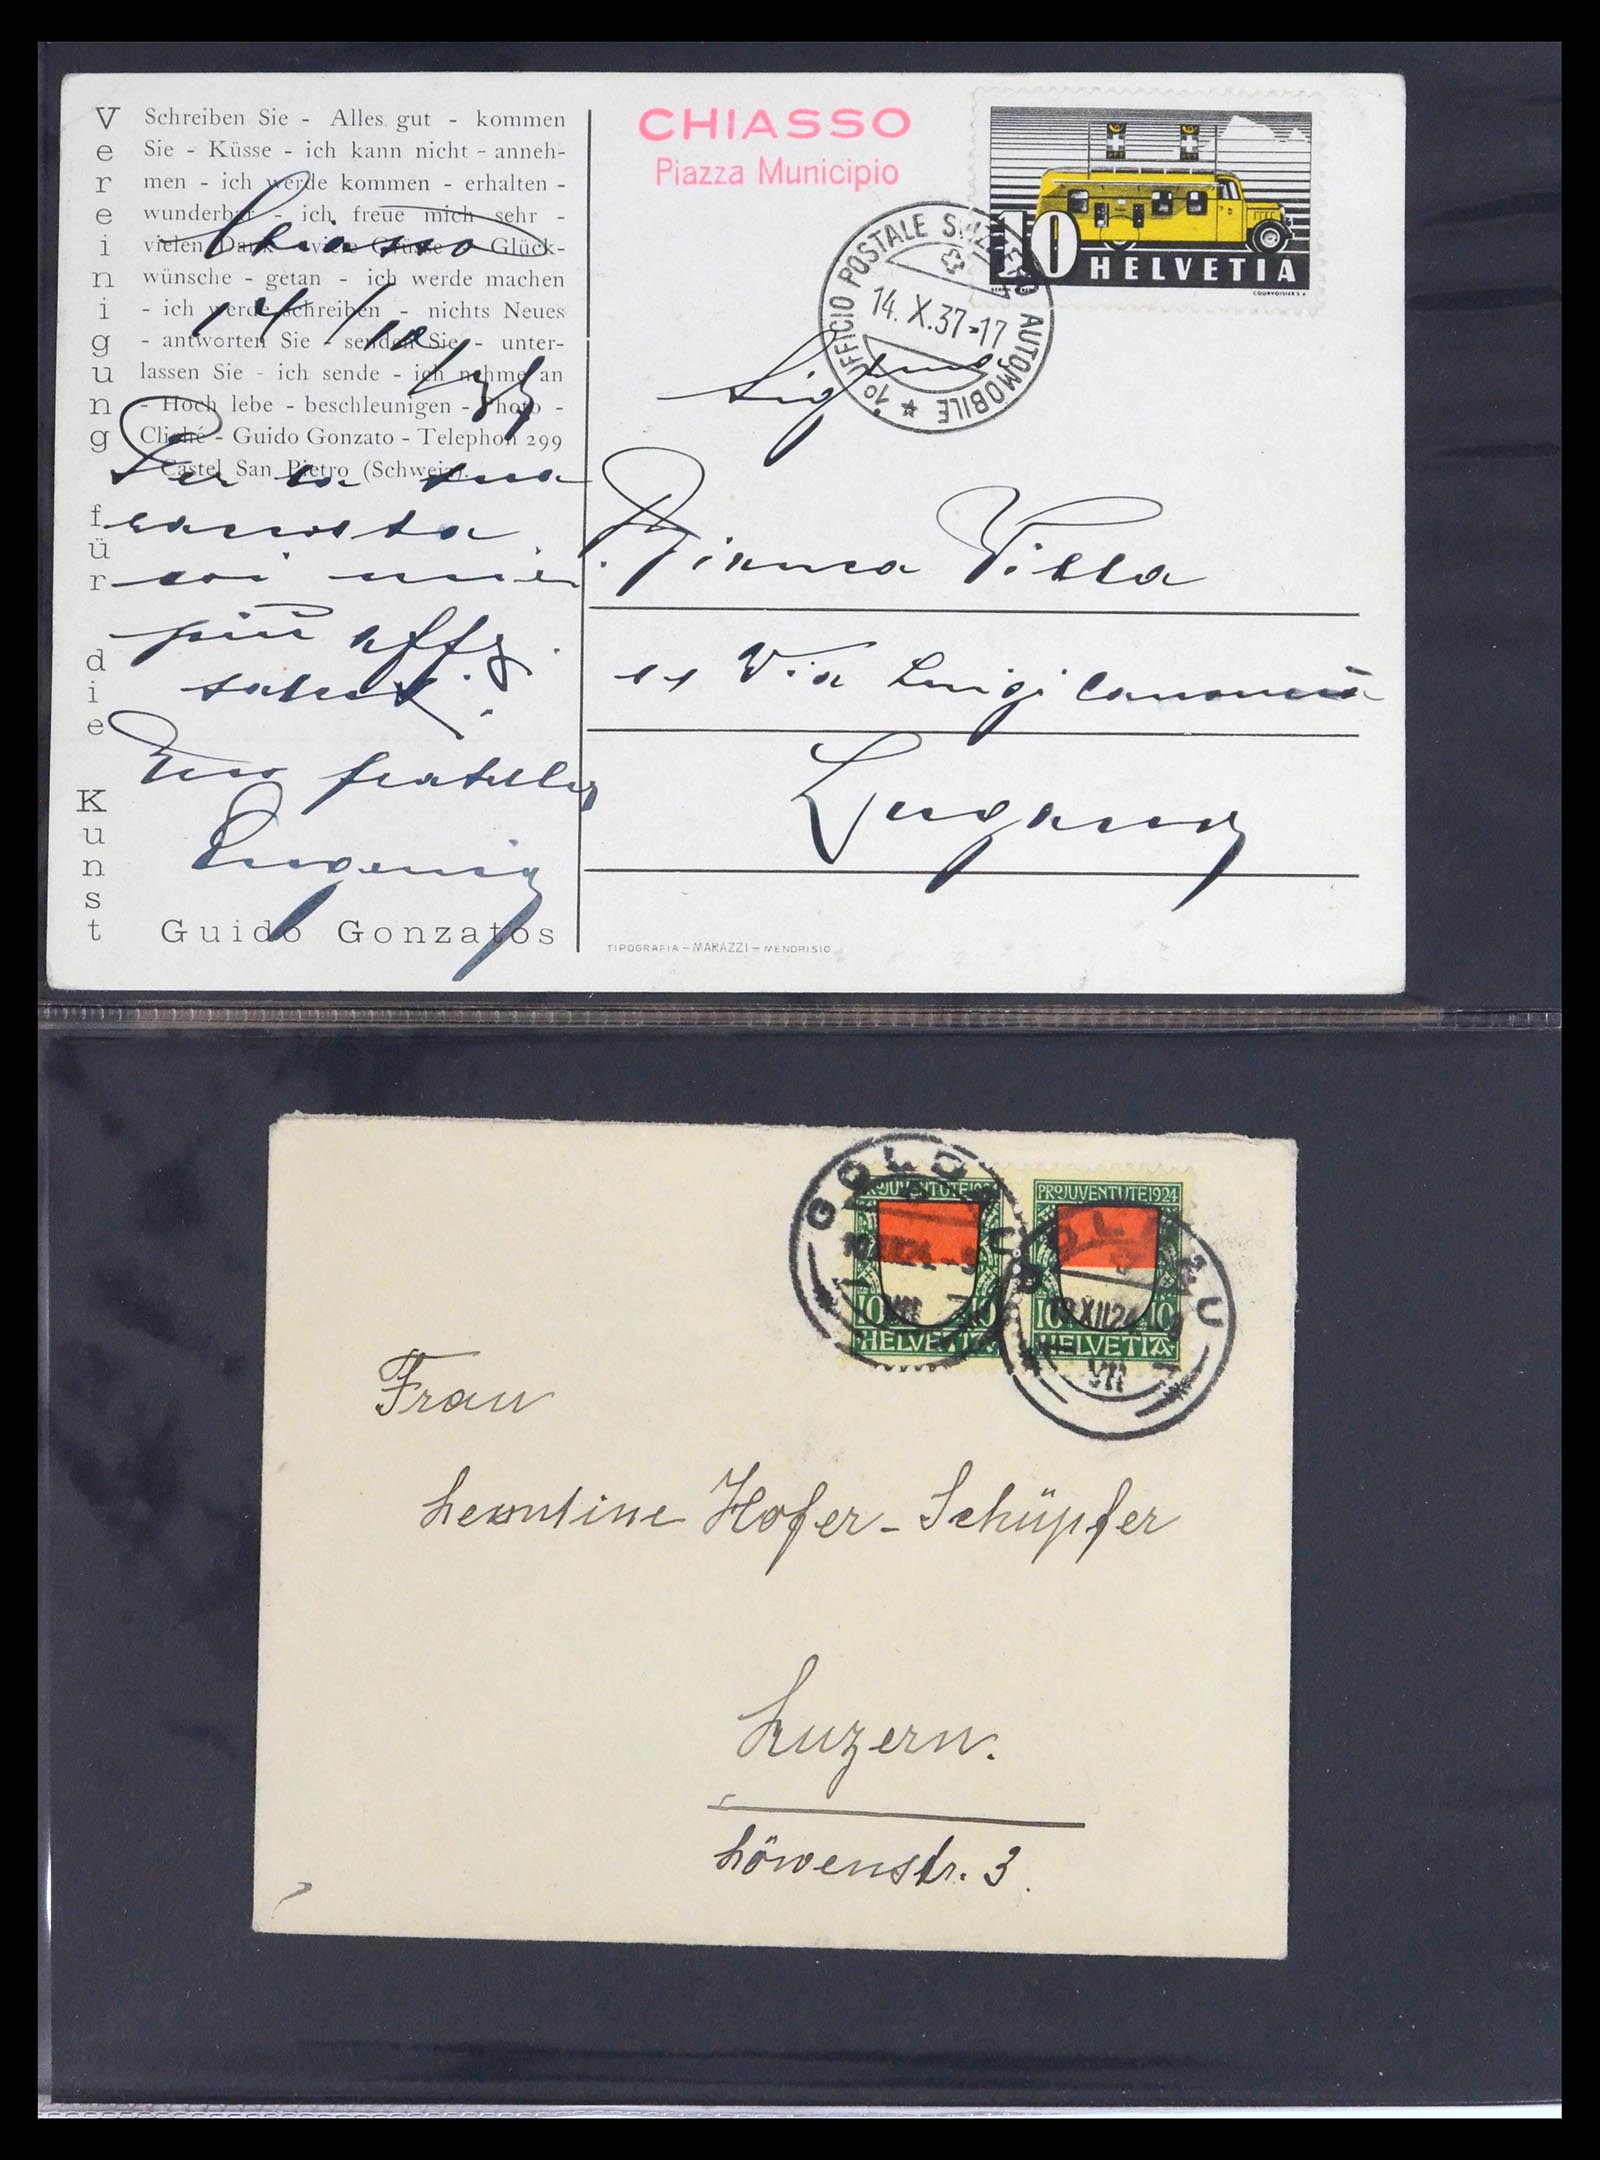 Vereinigung für die Kunst
Schreiben Sie - Alles gut - kommen
Sie - Küsse - ich kann nicht - anneh-
men - ich werde kommen - erhalten -
wunderbar - ich freue mich sehr -
vielen Dank - viele Grüsse - Glück-
wünsche - getan - ich werde machen
- ich werde schreiben - nichts Neues
- antworten Sie - senden Sie - unter-
lassen Sie - ich sende - ich nehme an
- Hoch lebe - beschleunigen - Photo -
Cliché - Guido Gonzato - Telephon 299
Castel San Pietro (Schweiz).
Guido Gonzatos
Chiasso
14/10
Per la tua
i miei
più aff.
saluti
Tuo fratello
Eugenio
CHIASSO
Piazza Municipio
10 HELVETIA
COURVOISIER S.A.
1º UFFICIO POSTALE SVIZZERO AUTOMOBILE
14.X.37-17
Bianca Villa
11 Via Luigi Canonica
Lugano
TIPOGRAFIA - MARAZZI - MENDRISIO
PRO JUVENTUTE 1924
10 10
HELVETIA
PRO JUVENTUTE 1924
10 10
HELVETIA
GOLDAU
VII
GOLDAU
XII 24
VII
Frau
Leontine Hofer-Schüpfer
Luzern.
Löwenstr. 3.